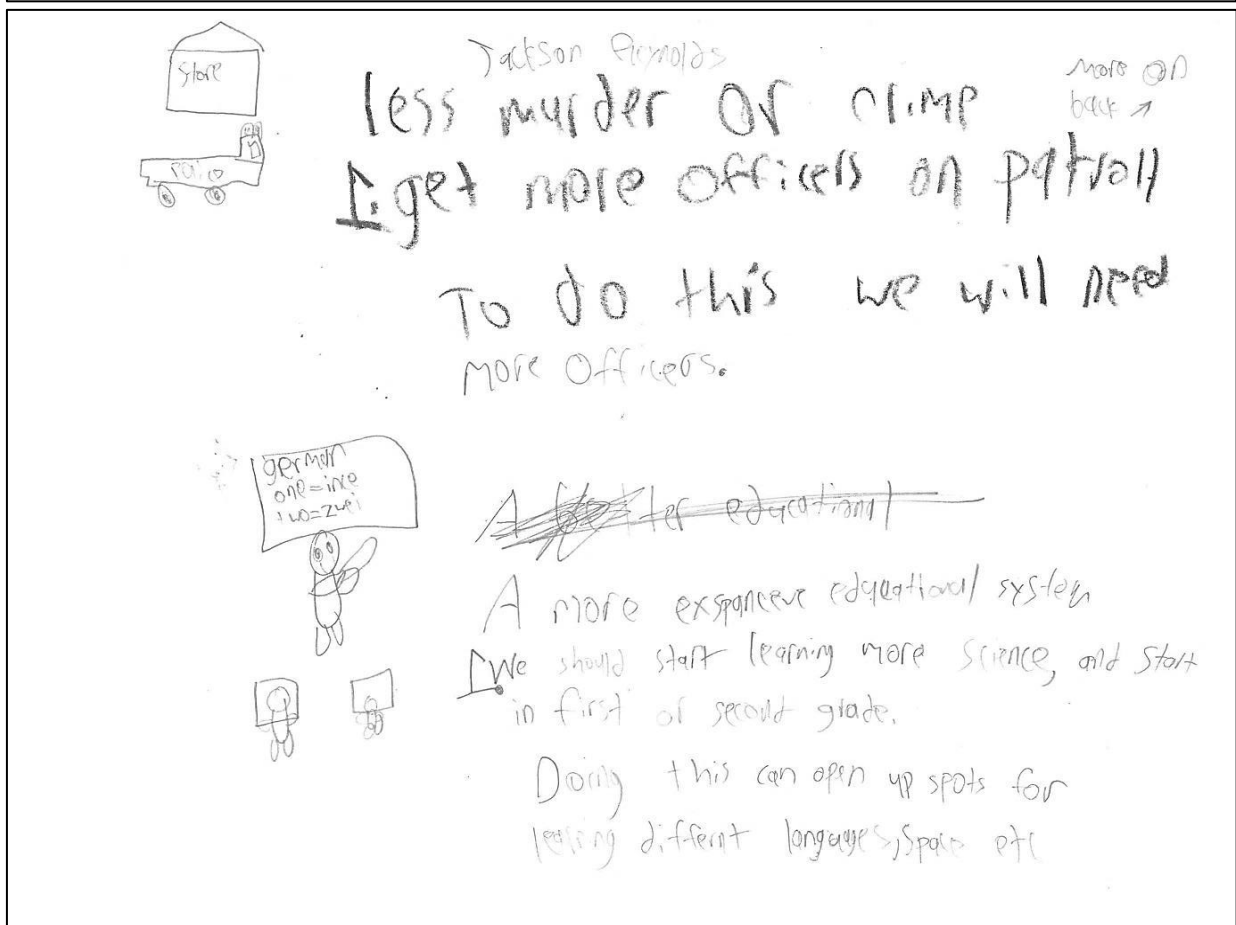 Store
Jackson Reynolds
more on
back
less murder or crime
1. get more officers on patroll
Poli
To do this we will need
more officers.
german
one=ine
two=zwei
A better educational
A more exspanceve educational system
1. We should start learning more science, and start
in first or second grade.
Doing this can open up spots for
learing differnt languages, space etc